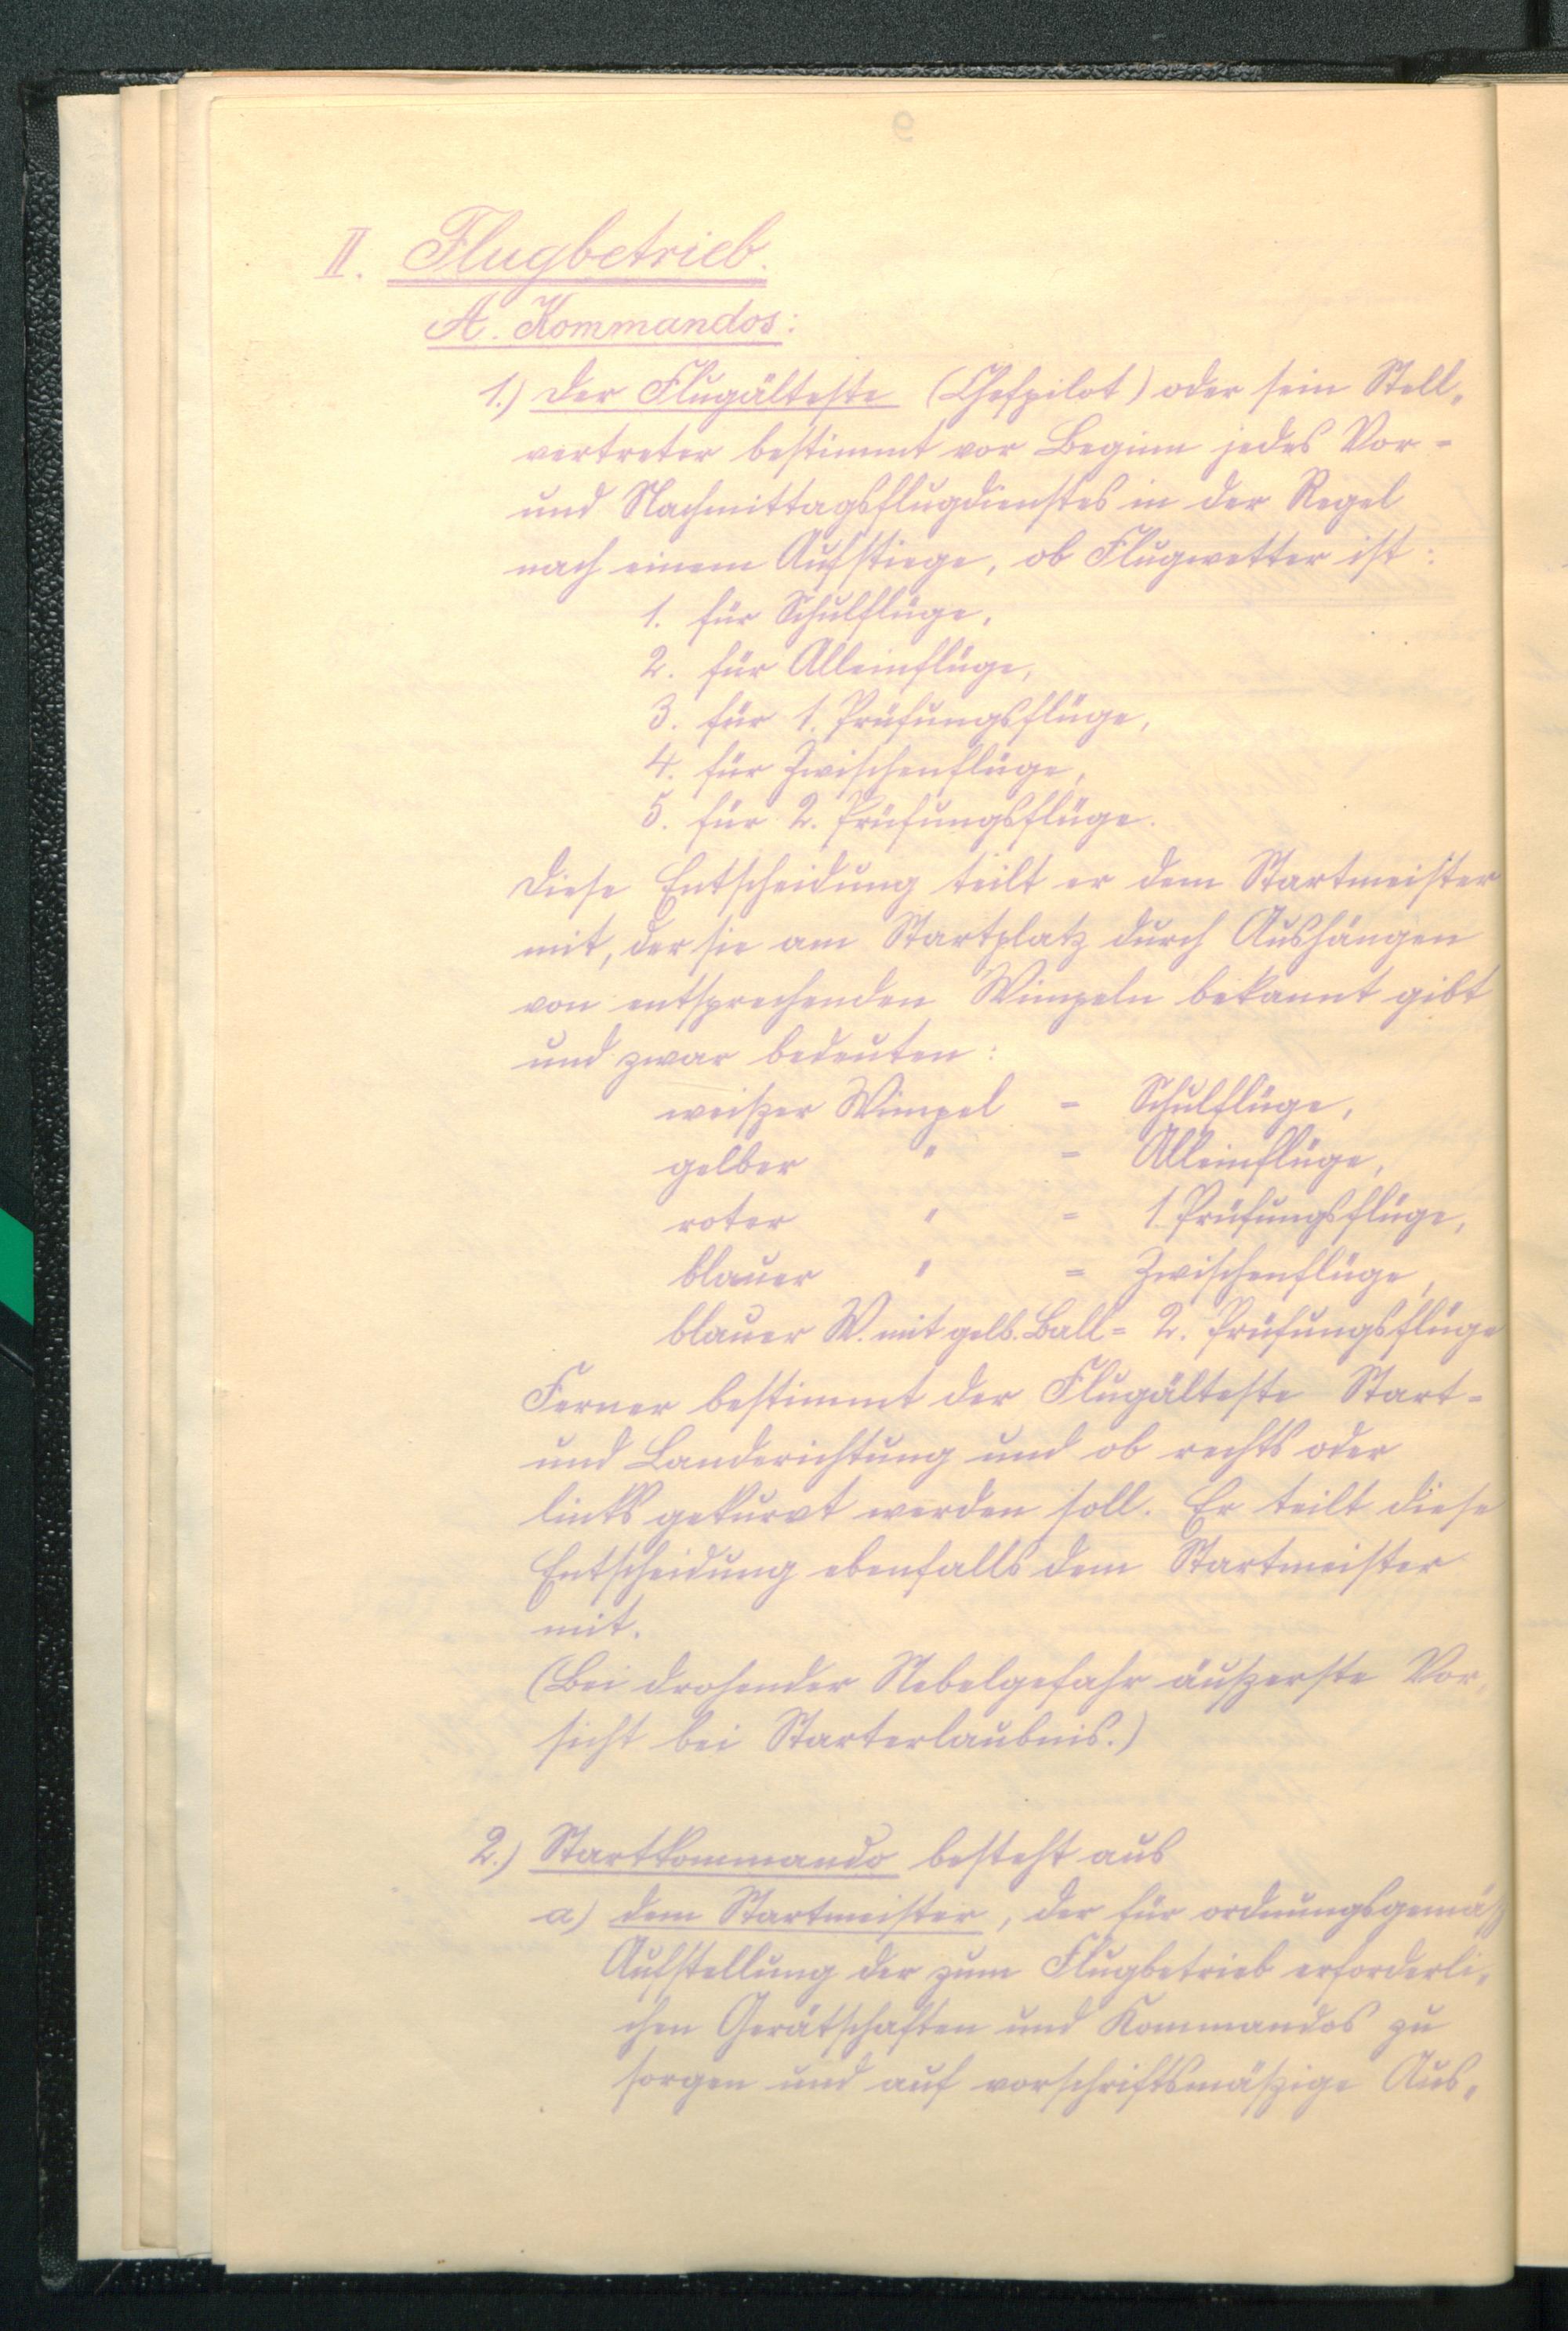 II. Flugbetrieb.
A. Kommandos:
1.) Der Flugälteste (Chefpilot) oder sein Stell-
vertreter bestimmt vor Beginn jedes Vor-
und Nachmittagsflugdienstes in der Regel
nach einem Aufstiege, ob Flugwetter ist:
1. für Schulflüge,
2. für Alleinflüge,
3. für 1. Prüfungsflüge,
4. für Zwischenflüge,
5. für 2. Prüfungsflüge.
Diese Entscheidung teilt er dem Startmeister
mit, der sie am Startplatz durch Aushängen
von entsprechenden Wimpeln bekannt gibt
und zwar bedeuten:
weißer Wimpel = Schulflüge,
gelber " = Alleinflüge,
roter " = 1. Prüfungsflüge,
blauer " = Zwischenflüge,
blauer W. mit gelb. Ball = 2. Prüfungsflüge
Ferner bestimmt der Flugälteste Start-
und Landerichtung und ob rechts oder
links gekurvt werden soll. Er teilt diese
Entscheidung ebenfalls dem Startmeister
mit.
(Bei drohender Nebelgefahr äußerste Vor-
sicht bei Starterlaubnis.)
2.) Startkommando besteht aus
a) dem Startmeister, der für ordnungsgemäß
Aufstellung der zum Flugbetrieb erforderli-
chen Gerätschaften und Kommandos zu
sorgen und auf vorschriftsmäßige Aus-